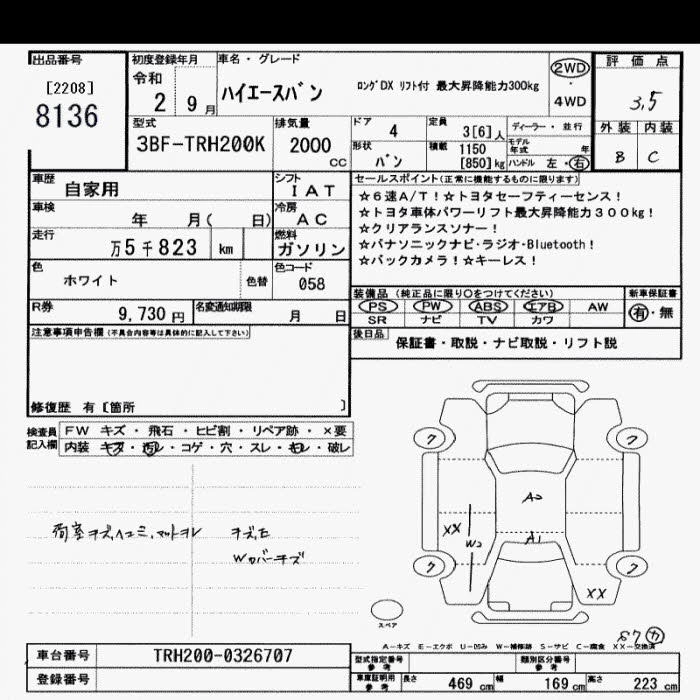 出品番号
[2208]
8136
初度登録年月
令和
2 9 月
車名・グレード
ハイエースバン
ロングDX リフト付 最大昇降能力300kg
2WD
・
4WD
評価点
3.5
外装 内装
B C
型式
3BF-TRH200K
排気量
2000 CC
ドア 4
定員 3[6]人
ディーラー・並行
形状 バン
積載 1150 [850]kg
モデル年式 年
ハンドル 左・右
車歴 自家用
シフト IAT
車検 年 月( 日)
冷房 AC
走行 万5千823 km
燃料 ガソリン
色 ホワイト 色替
色コード 058
R券 9,730円
名変通知期限 月 日
セールスポイント(正常に機能するものに限ります)
☆6速A/T!☆トヨタセーフティーセンス!
☆トヨタ車体パワーリフト最大昇降能力300kg!
☆クリアランスソナー!
☆パナソニックナビ・ラジオ・Bluetooth!
☆バックカメラ!☆キーレス!
装備品(純正品に限り○をつけてください)
PS PW ABS エアB AW
SR ナビ TV カワ
新車保証書
有・無
後日品 保証書・取説・ナビ取説・リフト説
注意事項申告欄(不具合内容等は具体的に記入して下さい)
修復歴 有[箇所 ]
検査員記入欄
FW キズ・飛石・ヒビ割・リペア跡・×要
内装 キズ・汚レ・コゲ・穴・スレ・モレ・破レ
荷室キズ,ヘコミ,マットヨレ キズ,モ
Wカバーキズ
ワ ワ
A2
XX
W2 A1
ワ ワ
XX
スペア
A-キズ E-エクボ U-凹み W-補修跡 S-サビ C-腐食 XX-交換済
車台番号 TRH200-0326707
登録番号
型式指定番号 参考
類別区分番号 参考
車庫証明用 参考 長さ 469 cm 幅 169 cm 高さ 223 cm